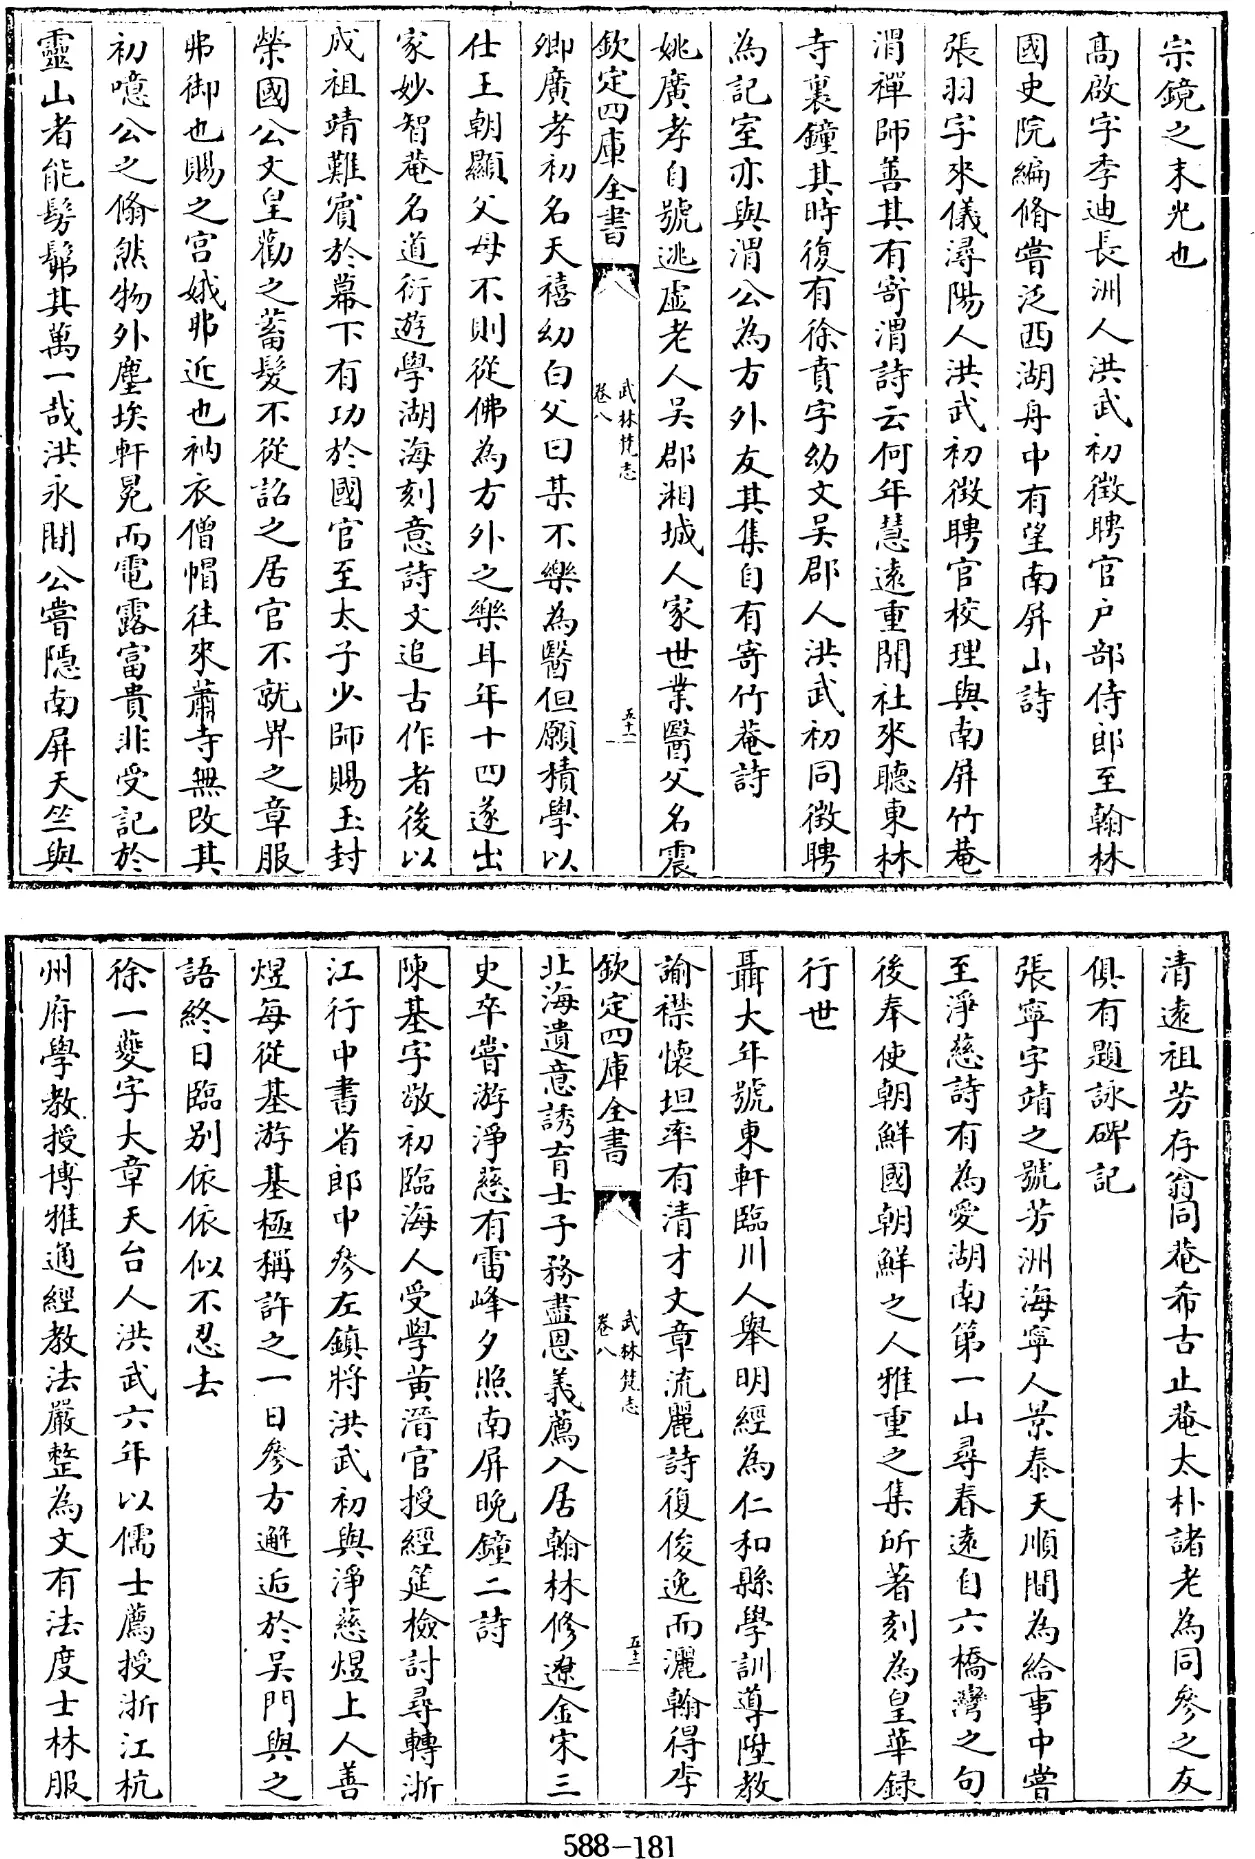 宗鏡之末光也
高啟字季迪長洲人洪武初徵聘官户部侍郎至翰林
國史院編脩嘗泛西湖舟中有望南屏山詩
張羽字來儀潯陽人洪武初徵聘官校理與南屏竹菴
渭禪師善其有寄渭詩云何年慧遠重開社來聽東林
寺裏鐘其時復有徐賁字幼文吴郡人洪武初同徵聘
為記室亦與渭公為方外友其集自有寄竹菴詩
姚廣孝自號逃虚老人吴郡湘城人家世業醫父名震
欽定四庫全書
武林梵志
卷八
五十一
卿廣孝初名天禧幼白父曰某不樂為醫但願積學以
仕王朝顯父母不則從佛為方外之樂耳年十四遂出
家妙智菴名道衍遊學湖海刻意詩文追古作者後以
成祖靖難賔於幕下有功於國官至太子少師賜玉封
榮國公文皇勸之蓄髮不從詔之居官不就畀之章服
弗御也賜之宫娥弗近也衲衣僧帽往來蕭寺無改其
初噫公之翛然物外塵埃軒冕而電露富貴非受記於
靈山者能髣髴其萬一哉洪永間公嘗隱南屏天竺與
清遠祖芳存翁同菴希古止菴太朴諸老為同參之友
俱有題詠碑記
張寧字靖之號芳洲海寧人景泰天順間為給事中嘗
至淨慈詩有為愛湖南第一山尋春遠自六橋灣之句
後奉使朝鮮國朝鮮之人雅重之集所著刻為皇華録
行世
聶大年號東軒臨川人舉明經為仁和縣學訓導陞教
諭襟懷坦率有清才文章流麗詩復俊逸而灑翰得李
欽定四庫全書
武林梵志
卷八
五十二
北海遺意誘育士子務盡恩義薦入居翰林修遼金宋三
史卒嘗游淨慈有雷峰夕照南屏晚鐘二詩
陳基字敬初臨海人受學黄溍官授經筵檢討尋轉浙
江行中書省郎中參左鎮將洪武初與淨慈煜上人善
煜每從基游基極稱許之一日參方邂逅於吴門與之
語終日臨别依依似不忍去
徐一夔字大章天台人洪武六年以儒士薦授浙江杭
州府學教授博雅通經教法嚴整為文有法度士林服
588-181